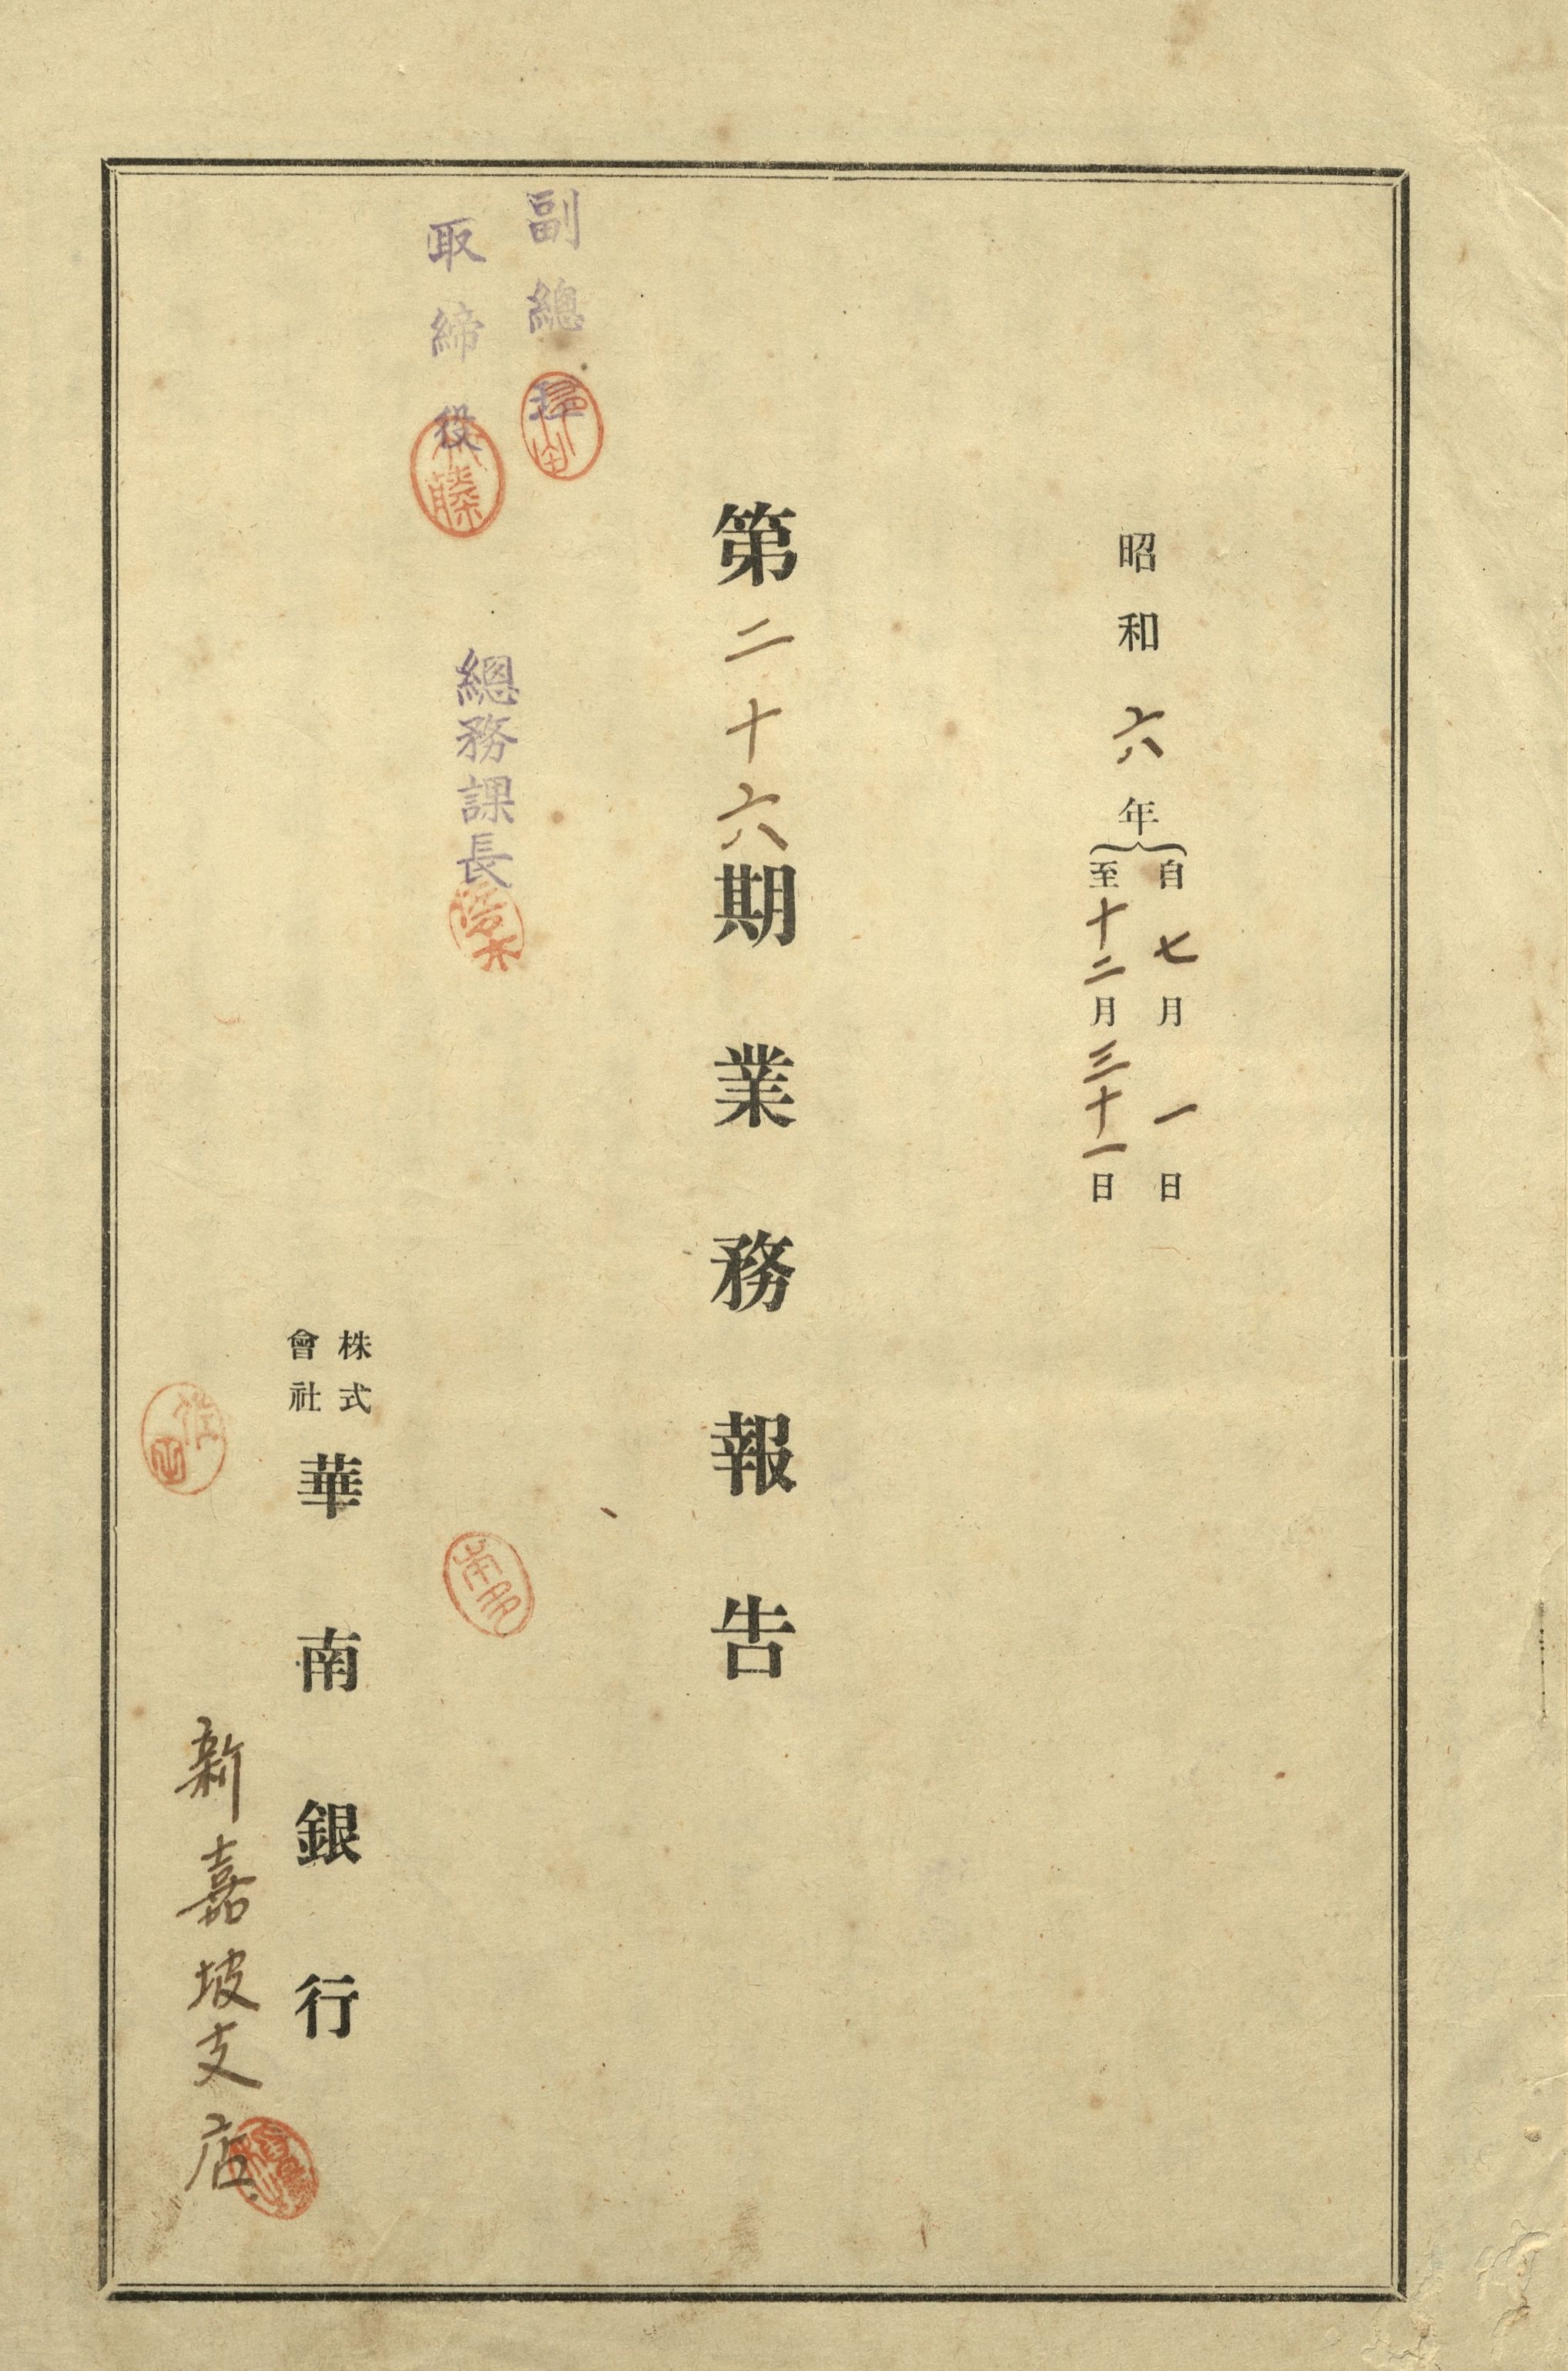 昭和六年
自七月一日
至十二月三十一日
第二十六期業務報告
副總理
取締役
總務課長
株式
會社
華南銀行
新嘉坡支店